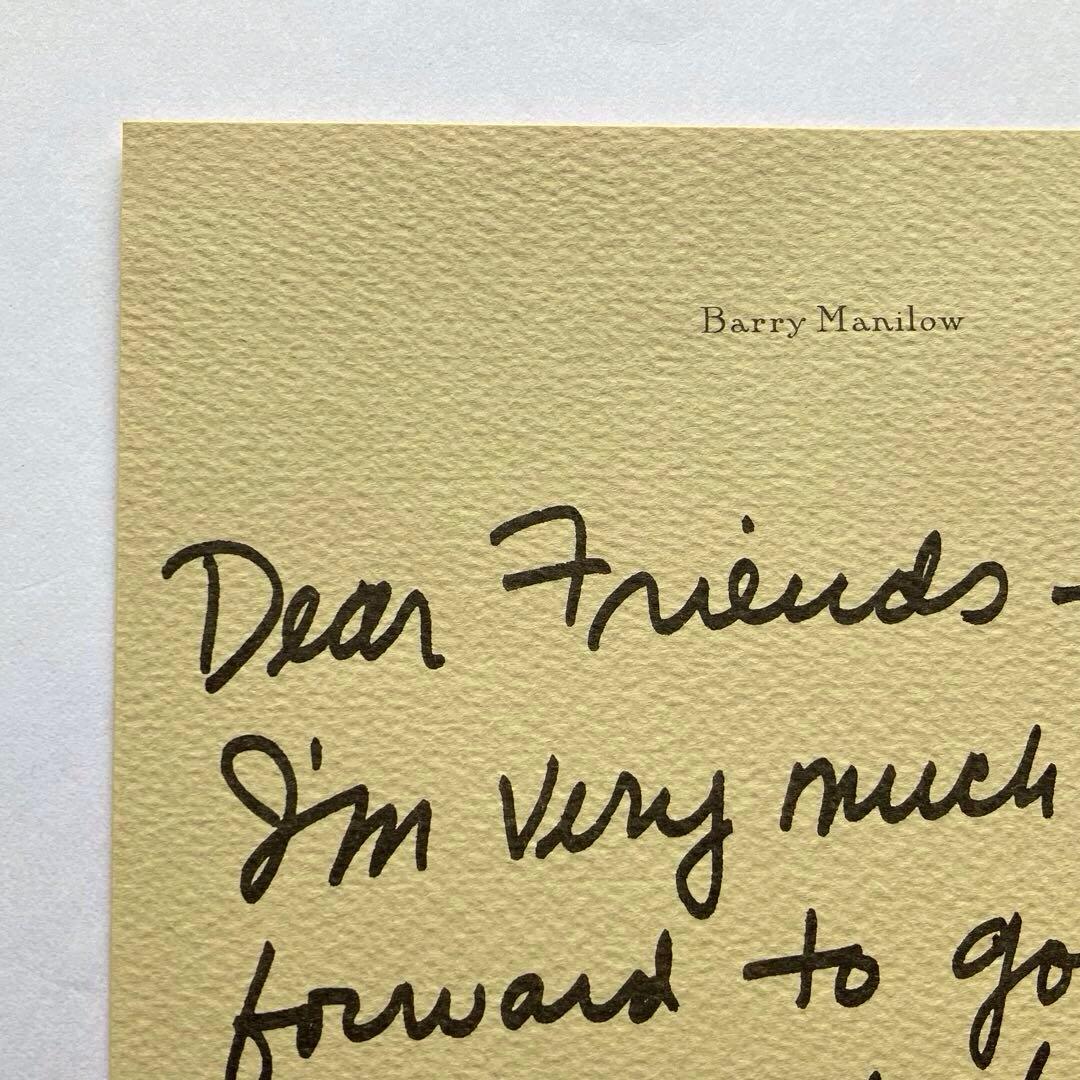 Barry Manilow
Dear Friends -
I'm very much
forward to go